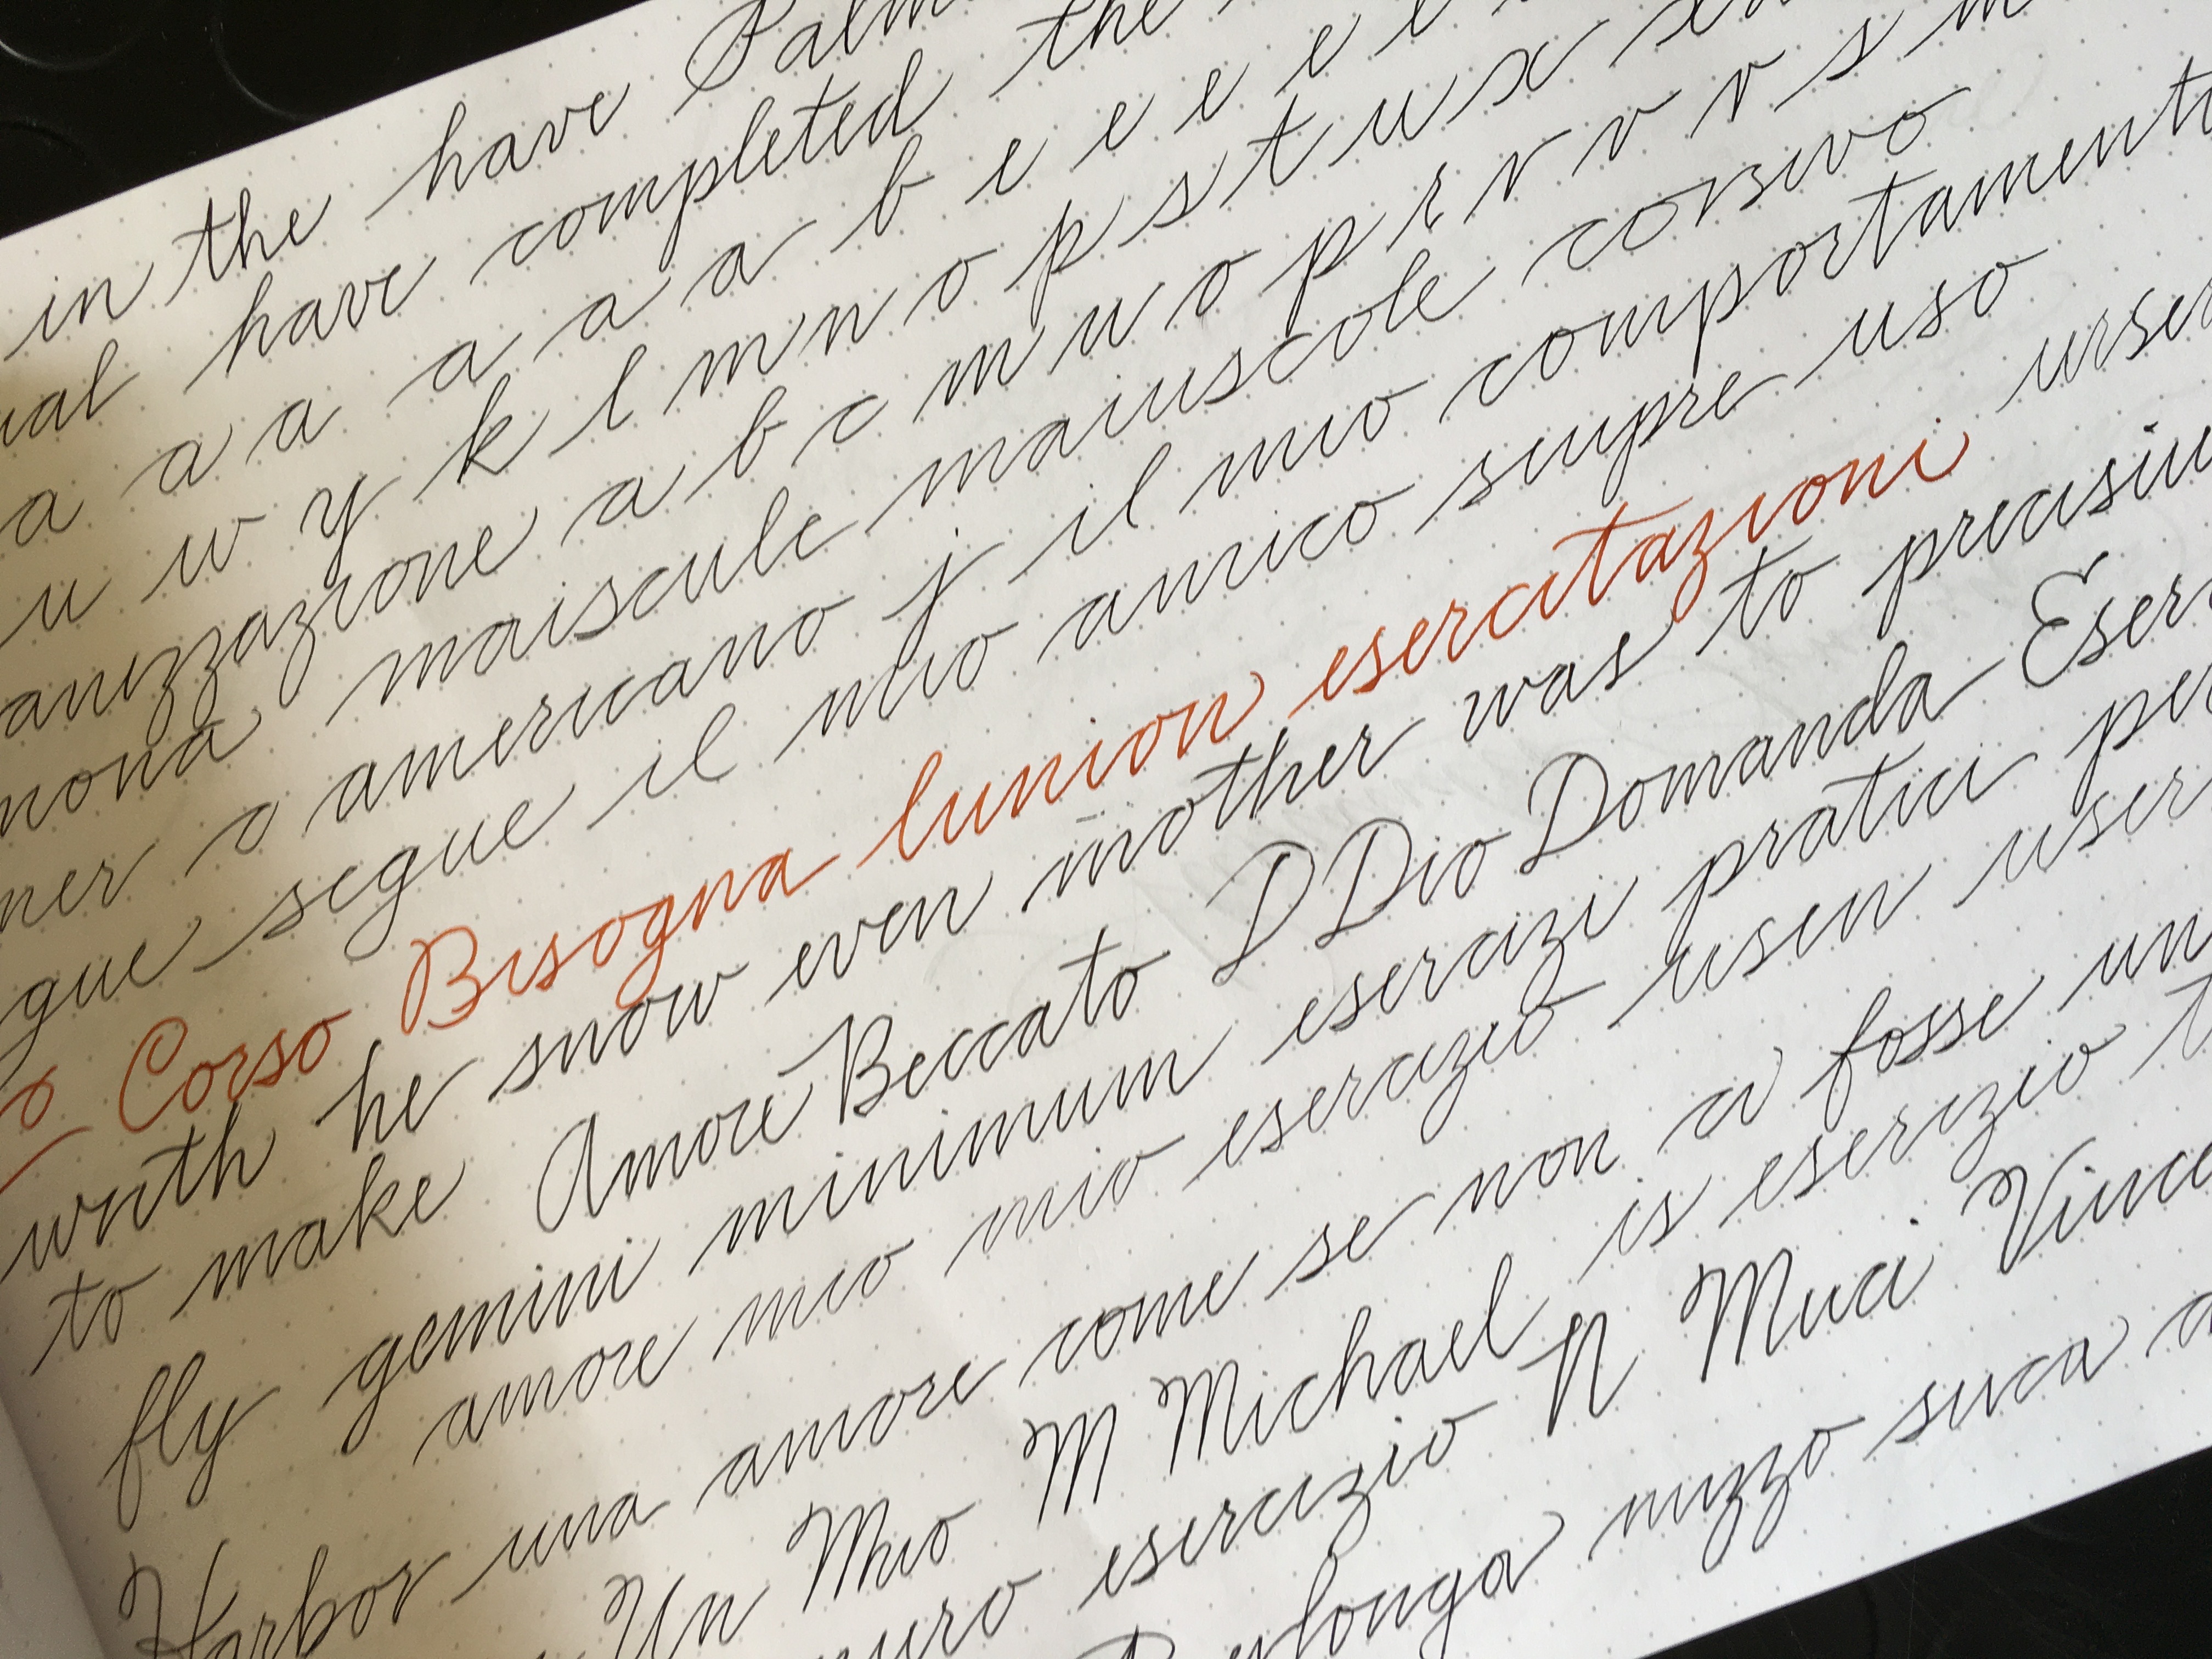 in the have
have completed the
a a a a a a a b e e e e
u w y k l m n o p s t u x
anizzazione a b c m u o p r r v v s
nona maiscule maiuscole corsivo
o americano j il mio comportament
gue segue il mio amico sempre uso
Corso Bisogna lunion esercitazioni
with he snow even mother was to
to make Amore Beccato D Dio Domanda
fly gemini minimum esercizi pratici per
amore mio mio esercizio usen user
Harbor una amore come se non ci fosse un
Un Mio M Michael is esercizio
esercizio N Muci
nizzo suca